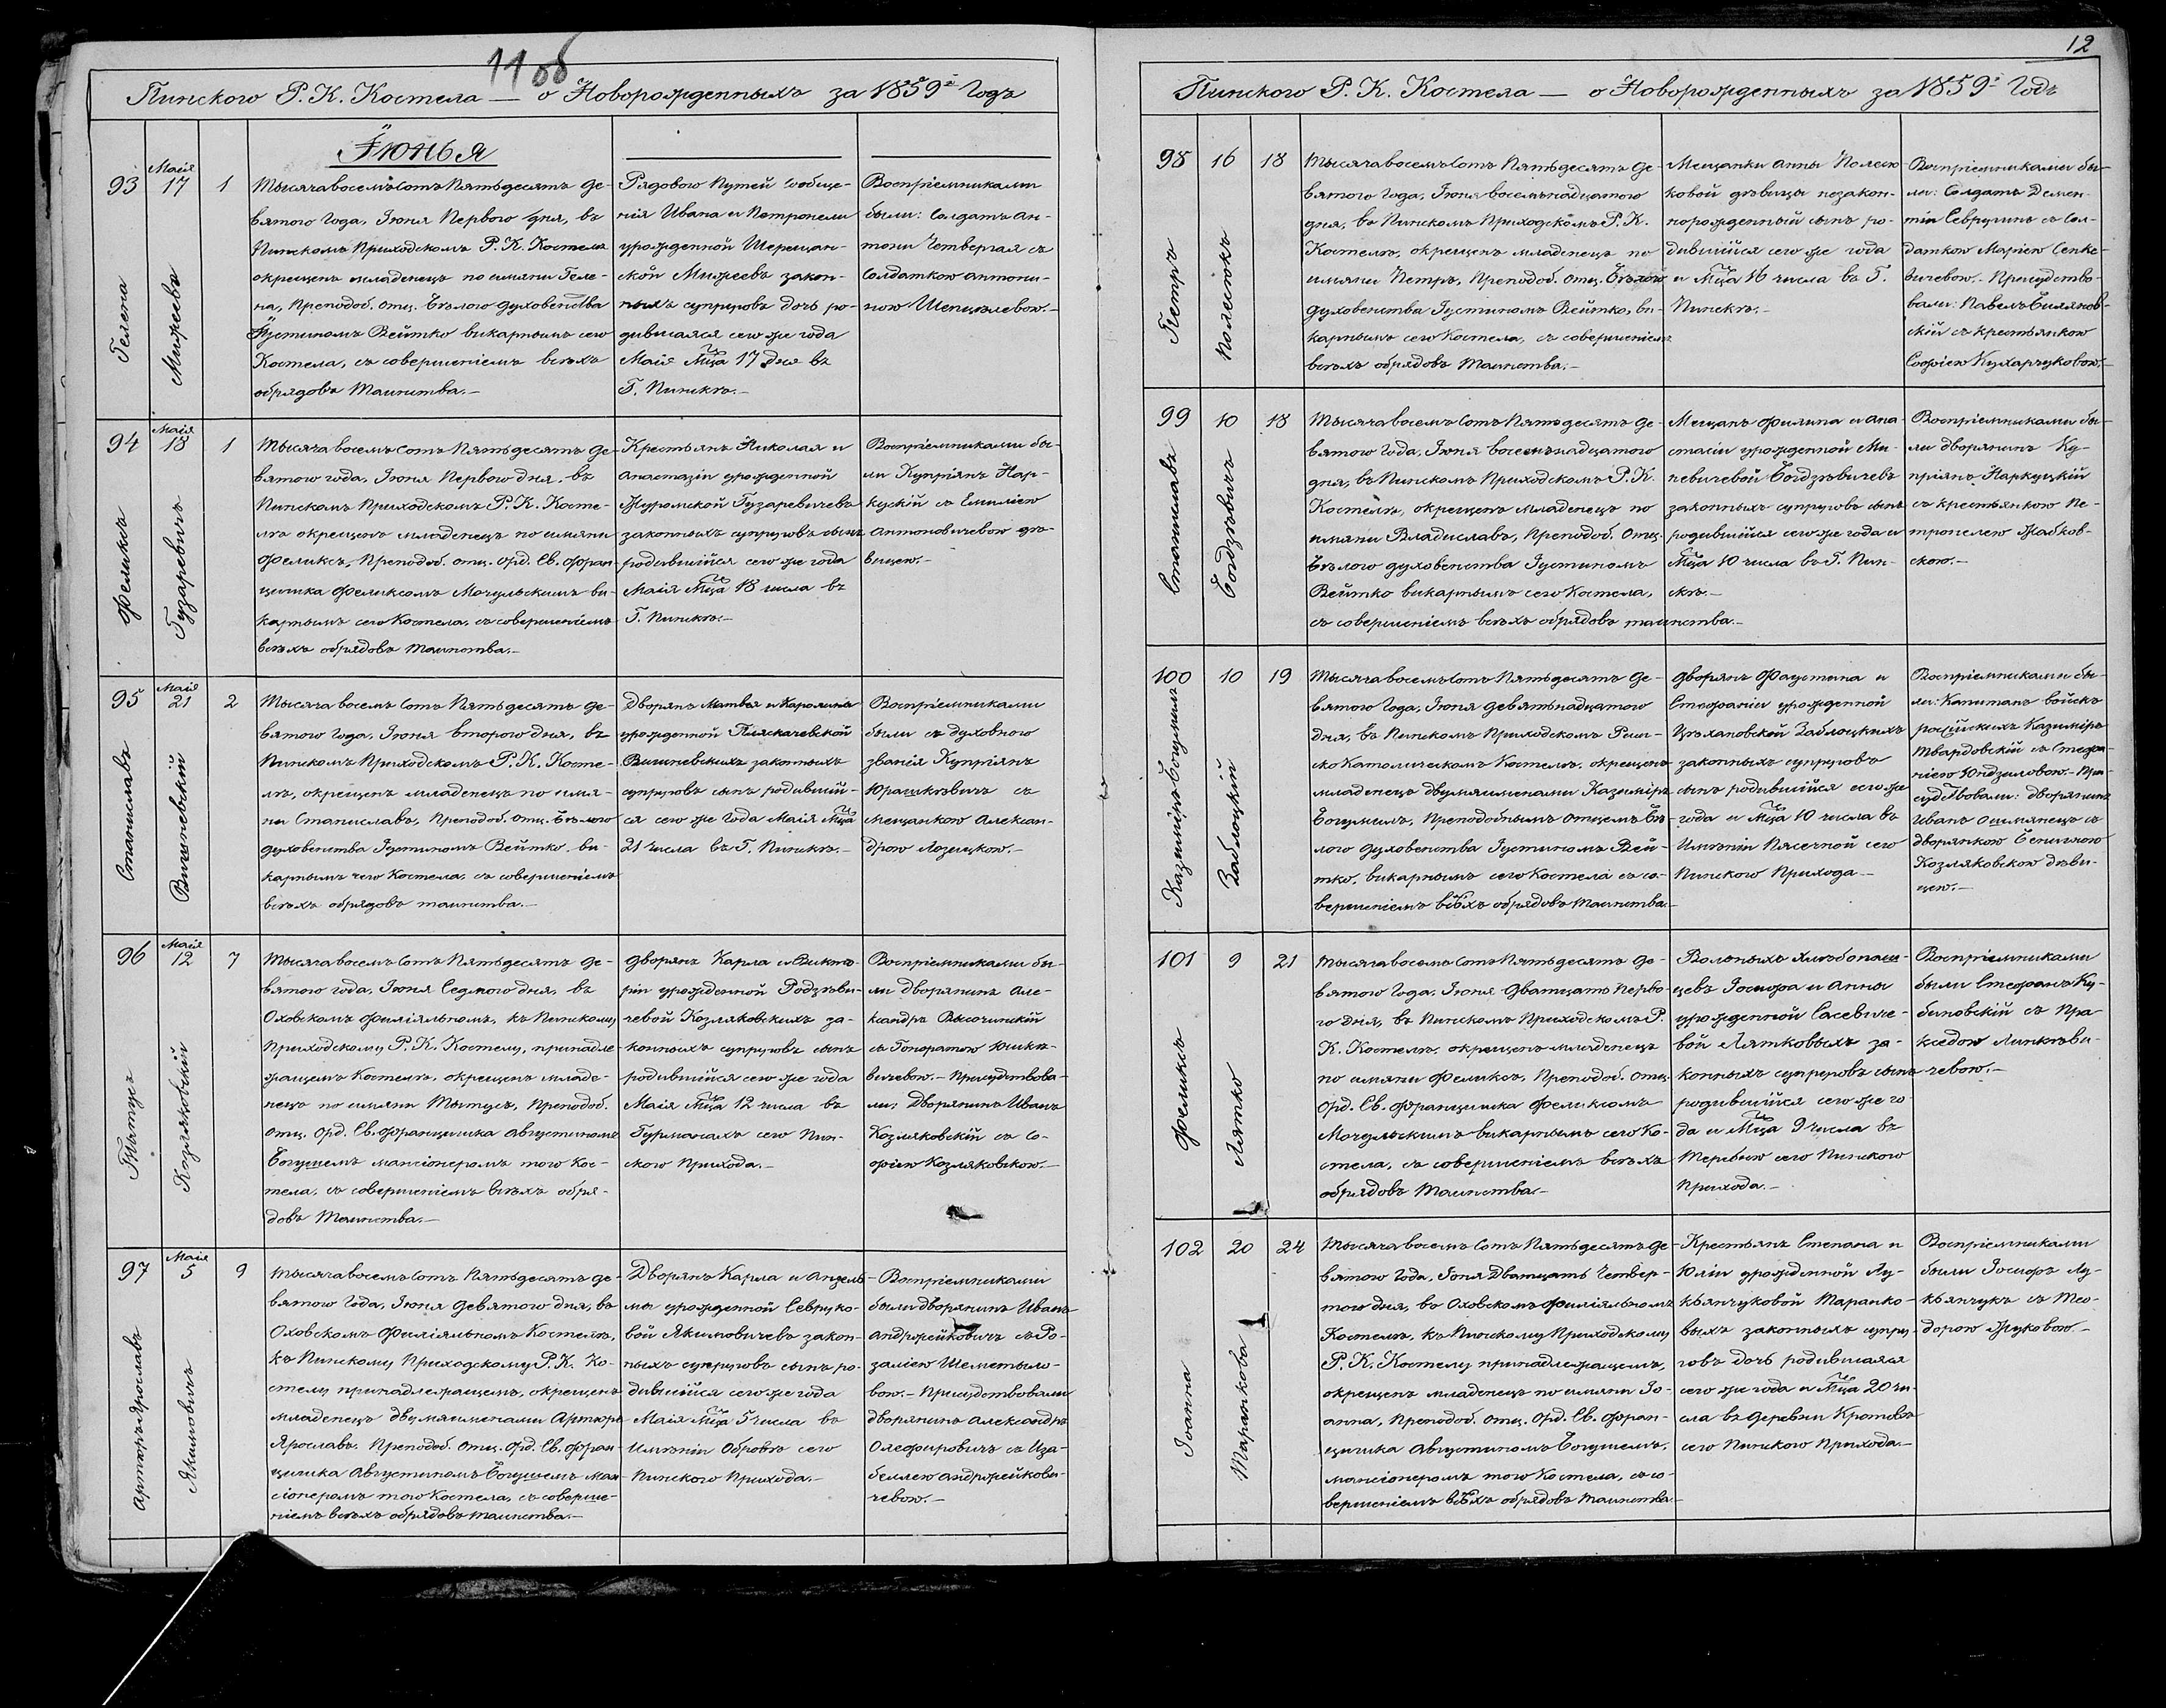 11 об
Пинского Р. К. Костела — о Новорожденныхъ за 1859й Годъ
Іюнья
93
Маія
17
1
Гелена
Михеевъ
Тысяча восемъ Сотъ Пятьдесятъ Де-
вятого Года, Іюня Первого дня, въ
Пинскомъ Приходскомъ Р. К. Костеле
окрещенъ младенецъ по имяни Геле-
на, Преподоб. отц. Бѣлого духовенства
Іустиномъ Вейтко викарнымъ сего
Костела, съ совершеніемъ всѣхъ
обрядовъ Таинства.—
Рядового Путей Сообще-
нія Ивана и Петронели
урожденной Шерешан-
ской Михеевъ закон-
ныхъ супруговъ дочь ро-
дившаяся сего же года
Маія Мца 17 дня въ
Г. Пинскѣ.—
Воспріемниками
были: Солдатъ Ан-
тони Четвергая съ
Солдаткою Антони-
ною Шепшелевою.—
94
Маія
18
1
Феликсъ
Гузаревичъ
Тысяча восемъ Сотъ Пятьдесятъ Де-
вятого года, Іюня Первого дня, въ
Пинскомъ Приходскомъ Р. К. Косте-
лѣ окрещенъ младенецъ по имяни
Феликсъ, Преподоб. отц. Орд. Св. Фран-
цишка Феликсомъ Мочульскимъ ви-
карнымъ сего Костела, съ совершеніемъ
всѣхъ обрядовъ Таинства.—
Крестьянъ Николая и
Анастазіи урожденной
Журомской Гузаревичевъ
законныхъ супруговъ сынъ
родившійся сего же года
Маія Мца 18 числа въ
Г. Пинскѣ.—
Воспріемниками бы-
ли Купріянъ Нар-
кускій съ Емиліею
Антоновичевою дѣ-
вицею.—
95
Маія
21
2
Станиславъ
Вишневскій
Тысяча восемъ Сотъ Пятьдесятъ Де-
вятого Года, Іюня второго дня, въ
Пинскомъ Приходскомъ Р. К. Косте-
лѣ, окрещенъ младенецъ по имя-
ни Станиславъ, Преподоб. отц. Бѣлого
духовенства Іустиномъ Вейтко, ви-
карнымъ сего Костела, съ совершеніемъ
всѣхъ обрядовъ таинства.—
Дворянъ Матвея и Каролины
урожденной Пляскачевской
Вишневскихъ законныхъ
супруговъ сынъ родившій-
ся сего же Года Маія Мца
21 числа въ Г. Пинскѣ.—
Воспріемниками
были съ духовного
званія Купріянъ
Юрашкѣвичъ съ
мещанкою Алексан-
дрою Лозицкою.—
96
Маія
12
7
Тытусъ
Козляковскій
Тысяча восемъ Сотъ Пятьдесятъ Де-
вятого года, Іюня Седмого дня, въ
Оховскомъ Филіяльномъ, къ Пинскому
Приходскому Р. К. Костелу, принадле-
жащемъ Костелѣ, окрещенъ младе-
нецъ по имяни Тытусъ, Преподоб.
отц. Орд. Св. Францишка Августиномъ
Богушемъ мансіонеромъ того Кос-
тела, съ совершеніемъ всѣхъ обря-
довъ Таинства.—
Дворянъ Карла и Викто-
ріи урожденной Родзѣви-
чевой Козляковскихъ за-
конныхъ супруговъ сынъ
родившійся сего же года
Маія Мца 12 числа въ
Гурмонахъ сего Пин-
ского прихода.—
Воспріемниками бы-
ли дворянинъ Але-
ксандръ Высочинскій
съ Гоноратою Юшкѣ-
вичевою.— Присудствова-
ли: Дворянинъ Иванъ
Козляковскій съ Со-
фіею Козляковскою.—
97
Маія
5
9
Артюръ Ярославъ
Якимовичъ
Тысяча восемъ Сотъ Пятьдесятъ де-
вятого Года, Іюня Девятого дня, въ
Оховскомъ Филіяльномъ Костелѣ,
къ Пинскому Приходскому Р. К. Ко-
стелу принадлежащемъ, окрещенъ
младенецъ двумя именами Артюръ
Ярославъ. Преподоб. отц. Орд. Св. Фран-
цишка Августиномъ Богушемъ ман-
сіонеромъ того Костела, съ соверше-
ніемъ всѣхъ обрядовъ таинства.—
Дворянъ Карла и Ангель-
мы урожденной Севруко-
вой Якимовичевъ закон-
ныхъ супруговъ сынъ ро-
дившійся сего же года
Маія Мца 5 числа въ
Имѣніи Обровѣ сего
Пинского Прихода.—
Воспріемниками
были дворянинъ Иванъ
Андржейковичъ съ Ро-
заліею Шеметылло-
вою.— Присудствовали
дворянинъ Александръ
Олефировичъ съ Иза-
беллею Андржейкови-
чевою.—
12
Пинского Р. К. Костела — о Новорожденныхъ за 1859й Годъ
98
16
18
Петръ
Полесіюкъ
Тысяча восемъ Сотъ Пятьдесятъ Де-
вятого Года, Іюня восемьнадцатого
дня, въ Пинскомъ Приходскомъ Р. К.
Костелѣ, окрещенъ младенецъ по
имяни Петръ, Преподоб. отц. Бѣлого
духовенства Іустиномъ Вейтко, ви-
карнымъ сего Костела, съ совершеніемъ
всѣхъ обрядовъ Таинства.—
Мещанки Анны Полесію-
ковой дѣвицы незакон-
норожденный сынъ ро-
дившійся сего же года
и Мца 16 числа въ Г.
Пинскѣ.—
Воспріемниками бы-
ли: Солдатъ Демен-
тій Севрунъ съ Сол-
даткою Маріею Сенке-
вичевою.— Присудство-
вали: Павелъ Билянов-
скій съ крестьянкою
Софіею Кухарчуковою.—
99
10
18
Станиславъ
Богдзѣвичъ
Тысяча восемъ Сотъ Пятьдесятъ Де-
вятого Года, Іюня восемьнадцатого
дня, въ Пинскомъ Приходскомъ Р. К.
Костелѣ, окрещенъ младенецъ по
имяни Владиславъ, Преподоб. Отц.
Бѣлого духовенства Іустиномъ
Вейтко викарнымъ сего Костела,
съ совершеніемъ всѣхъ обрядовъ таинства.—
Мещанъ Филипа и Ана
стасіи урожденной Ми-
невичевой Богдзѣвичевъ
законныхъ супруговъ сынъ
родившійся сего же года и
Мца 10 числа въ Г. Пин-
скѣ.—
Воспріемниками бы-
ли дворянинъ Ку-
пріянъ Наркуцкій
съ крестьянкою Пе-
тронелею Жабков-
скою.—
100
10
19
Казиміръ Богумилъ
Заблоцкій
Тысяча восемъ Сотъ Пятьдесятъ Де-
вятого Года, Іюня девятьнадцатого
дня, въ Пинскомъ Приходскомъ Рим-
ско Католическомъ Костелѣ, окрещенъ
младенецъ двумя именами Казиміръ
Богумилъ, Преподобнымъ отцемъ Бѣ-
лого духовенства Іустиномъ Вей-
тко, викарнымъ сего Костела съ со-
вершеніемъ всѣхъ обрядовъ таинства.—
Дворянъ Фаустина и
Стефаніи урожденной
Цѣхановской Заблоцкихъ
законныхъ супруговъ
сынъ родившійся сего же
года и Мца 10 числа въ
Имѣніи Пясечной сего
Пинского Прихода.—
Воспріемниками бы-
ли: Капитанъ войскъ
россійскихъ Казиміръ
Твардовскій съ Стефа-
ніею Юндзиловою.— При-
судствовали: дворянинъ
Иванъ Ошмянецъ съ
дворянкою Бенигною
Козляковскою дѣви-
цею.—
101
9
21
Феликсъ
Лятко
Тысяча восемъ Сотъ Пятьдесятъ Де-
вятого Года, Іюня Дватцать перво-
го дня, въ Пинскомъ Приходскомъ Р.
К. Костелѣ, окрещенъ младенецъ
по имяни Феликсъ, Преподоб. отц.
Орд. Св. Францишка Феликсомъ
Мочульскимъ викарнымъ сего Ко-
стела, съ совершеніемъ всѣхъ
обрядовъ таинства.—
Вольныхъ хлѣбопаш-
цевъ Іосифа и Анны
урожденной Сасевиче-
вой Лятковыхъ за-
конныхъ супруговъ сынъ
родившійся сего же го-
да и Мца 9 числа въ
Теребню сего Пинского
Прихода.—
Воспріемниками
были Стефанъ Ку-
биновскій съ Пра-
кседою Линкѣви-
чевою.—
102
20
24
Іоанна
Таранкова
Тысяча восемъ Сотъ Пятьдесятъ Де-
вятого Года, Іюня Дватцать Четвер-
того дня, въ Оховскомъ Филіяльномъ
Костелѣ, къ Пинскому Приходскому
Р. К. Костелу принадлежащемъ,
окрещенъ младенецъ по имяни Іо-
анна, Преподоб. отц. Орд. Св. Фран-
цишка Августиномъ Богушемъ,
мансіонеромъ того Костела, съ со-
вершеніемъ всѣхъ обрядовъ таинства.—
Крестьянъ Степана и
Юліи урожденной Лу-
кьянчуковой Таранко-
выхъ законныхъ супру-
говъ дочь родившаяся
сего же года и Мца 20 чи-
сла въ деревни Кротовъ
сего Пинского Прихода.—
Воспріемниками
были Іосифъ Лу-
кьянчукъ съ Тео-
дорою Жуковою.—